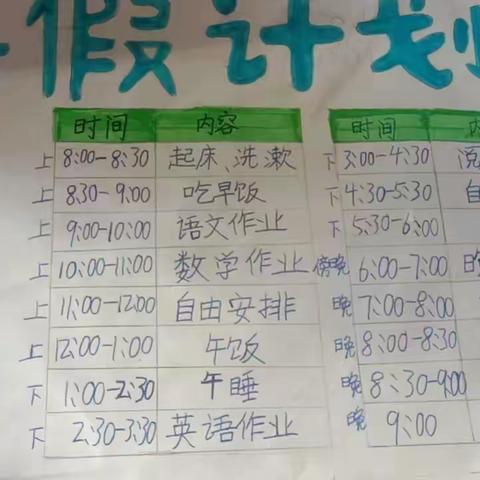 假计划
时间 内容
上 8:00-8:30 起床、洗漱
上 8:30-9:00 吃早饭
上 9:00-10:00 语文作业
上 10:00-11:00 数学作业
上 11:00-12:00 自由安排
上 12:00-1:00 午饭
下 1:00-2:30 午睡
下 2:30-3:30 英语作业
时间
下 3:00-4:30
下 4:30-5:30 自
下 5:30-6:00
傍晚 6:00-7:00
晚 7:00-8:00
晚 8:00-8:30
晚 8:30-9:00
晚 9:00